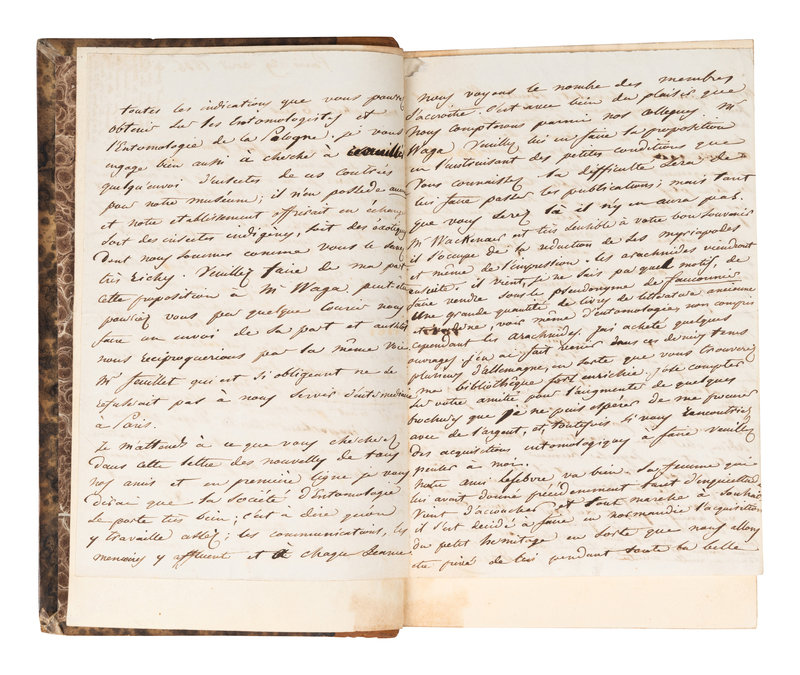 toutes les indications que vous pourrez
obtenir sur les Entomologistes et
l'Entomologie de la Pologne. je vous
engage bien aussi à cherche à
quelqu'envoi d'insectes de ces contrées
pour notre museum; il n'en possède aucun
et notre etablissement offrirait en échange
soit des insectes indigènes, soit des exotiques
Dont nous sommes comme vous le savez
très riches. Veuillez faire de ma part
cette proposition à Mr Waga peut être
pourriez vous par quelque courier nous
faire un envoi de sa part et aussitôt
nous réciproquerions par la même voie
Mr feuillet qui est si obligeant ne se
refuserait pas à nous servir d'intermédiaire
à Paris.
Je m'attends à ce que vous cherchez
dans cette lettre des nouvelles de tous
nos amis et en première ligne je vous
dirai que la Société d'Entomologie
se porte très bien; c'est à dire qu'on
y travaille assez; les communications, les
memoires y affluent et à chaque Séance
nous voyons le nombre des membres
s'accroitre. C'est avec bien du plaisir que
nous compterons parmi nos collegues Mr
Waga Veuillez lui en faire la proposition
en l'instruisant des petites conditions que
vous connaissez. la difficulté sera de
lui faire passer les publications; mais tant
que vous serez là il n'y en aura pas.
Mr Walckenaer est très sensible à votre bon souvenir
il s'occupe de la rédaction de ses myriapodes
et même de l'impression. les arachnides viendront
ensuite. il vient, je ne sais pas quel motif, de
faire vendre sous le pseudonyme de fauconnier
une grande quantité de livres de litterature ancienne
et, voir même d'entomologie, non compris
cependant les arachnides. j'ai acheté quelques
ouvrages j'en ai fait venir dans ces derniers tems
plusieurs d'allemagne, en sorte que vous trouverez
ma bibliothèque fort enrichie. j'ose compter
sur votre amitié pour l'augmenter de quelques
brochures que je ne puis espérer de me procurer
avec de l'argent, et toutefois si vous rencontriez
des acquisitions entomologiques à faire veuillez
penser à moi.
notre ami lefebvre va bien. Sa femme qui
lui avait donné précédemment tant d'inquiétude
vient d'accoucher et tout marche à souhait
il s'est décidé à faire en normandie l'acquisition
du petit hermitage en sorte que nous allons
être privé de lui pendant toute la belle